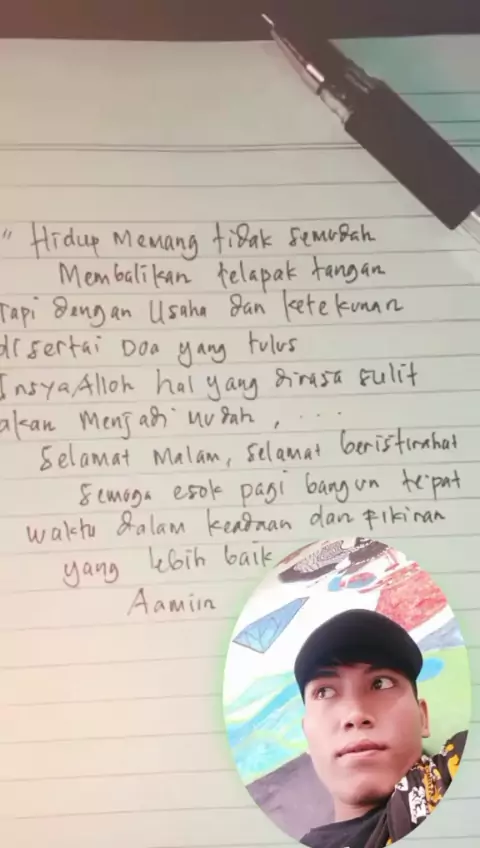 " Hidup Memang tidak semudah
Membalikan telapak tangan
Tapi dengan Usaha dan ketekunan
disertai Doa yang tulus
InsyaAlloh hal yang dirasa sulit
akan Menjadi mudah, ...
Selamat Malam, selamat beristirahat
Semoga esok pagi bangun tepat
waktu dalam keadaan dan fikiran
yang lebih baik
Aamiin